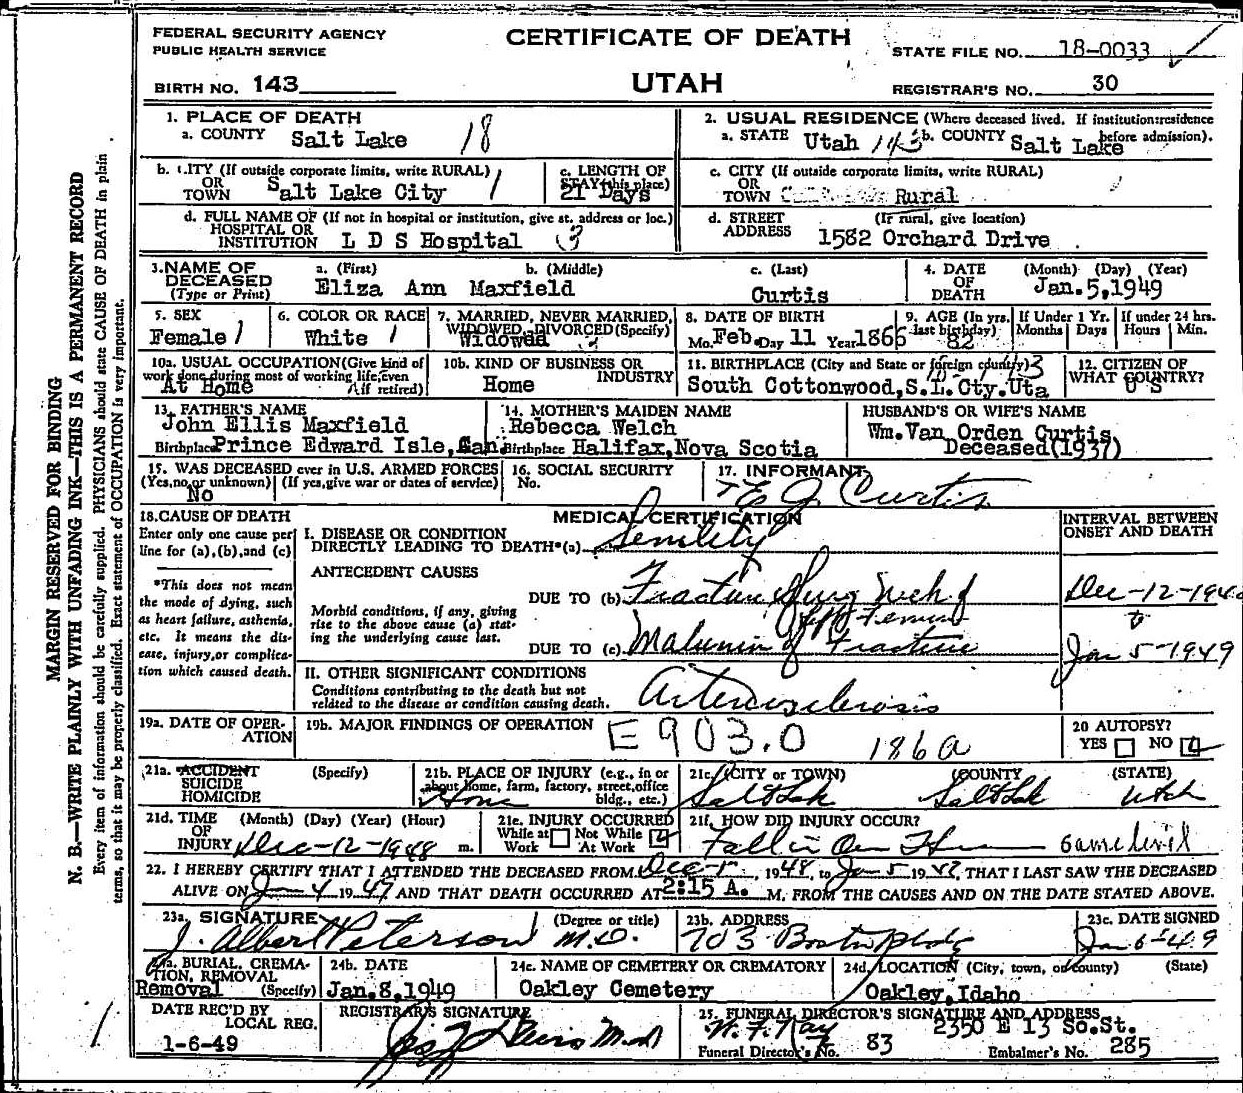 FEDERAL SECURITY AGENCY
PUBLIC HEALTH SERVICE
CERTIFICATE OF DEATH
STATE FILE NO. 18-0033
BIRTH NO. 143
UTAH
REGISTRAR'S NO. 30
MARGIN RESERVED FOR BINDING
N. B.—WRITE PLAINLY WITH UNFADING INK—THIS IS A PERMANENT RECORD
Every item of information should be carefully supplied. PHYSICIANS should state CAUSE OF DEATH in plain
terms, so that it may be properly classified. Exact statement of OCCUPATION is very important.
1. PLACE OF DEATH
a. COUNTY Salt Lake 18
2. USUAL RESIDENCE (Where deceased lived. If institution:residence before admission).
a. STATE Utah 143 b. COUNTY Salt Lake
b. CITY (If outside corporate limits, write RURAL)
OR TOWN Salt Lake City 1
c. LENGTH OF STAY (this place)
21 Days
c. CITY (If outside corporate limits, write RURAL)
OR TOWN Rural
d. FULL NAME OF (If not in hospital or institution, give st. address or loc.)
HOSPITAL OR INSTITUTION L D S Hospital 3
d. STREET ADDRESS (If rural, give location)
1582 Orchard Drive
3. NAME OF DECEASED (Type or Print)
a. (First) b. (Middle) c. (Last)
Eliza Ann Maxfield Curtis
4. DATE OF DEATH (Month) (Day) (Year)
Jan.5,1949
5. SEX
Female 1
6. COLOR OR RACE
White 1
7. MARRIED, NEVER MARRIED, WIDOWED, DIVORCED (Specify)
Widowed
8. DATE OF BIRTH
Mo. Feb. Day 11 Year 1866
9. AGE (In yrs. last birthday)
82
If Under 1 Yr. Months Days
If under 24 hrs. Hours Min.
10a. USUAL OCCUPATION (Give kind of work done during most of working life, even if retired)
At Home
10b. KIND OF BUSINESS OR INDUSTRY
Home
11. BIRTHPLACE (City and State or foreign country)
South Cottonwood,S.L.Cty.Uta
12. CITIZEN OF WHAT COUNTRY?
U S
13. FATHER'S NAME
John Ellis Maxfield
Birthplace Prince Edward Isle, Can.
14. MOTHER'S MAIDEN NAME
Rebecca Welch
Birthplace Halifax,Nova Scotia
HUSBAND'S OR WIFE'S NAME
Wm.Van Orden Curtis
Deceased(1937)
15. WAS DECEASED ever in U.S. ARMED FORCES
(Yes, no, or unknown) (If yes, give war or dates of service)
No
16. SOCIAL SECURITY
No.
17. INFORMANT
E J Curtis
18. CAUSE OF DEATH
Enter only one cause per line for (a), (b), and (c)
*This does not mean the mode of dying, such as heart failure, asthenia, etc. It means the disease, injury, or complication which caused death.
MEDICAL CERTIFICATION
INTERVAL BETWEEN ONSET AND DEATH
I. DISEASE OR CONDITION
DIRECTLY LEADING TO DEATH*(a) Senility
ANTECEDENT CAUSES
Morbid conditions, if any, giving rise to the above cause (a) stating the underlying cause last.
DUE TO (b) Fracture Surg Neck of
Femur
DUE TO (c) Malunion of Fracture
Dec-12-194
to
Jan 5-1949
II. OTHER SIGNIFICANT CONDITIONS
Conditions contributing to the death but not related to the disease or condition causing death.
Arteriosclerosis
19a. DATE OF OPERATION
19b. MAJOR FINDINGS OF OPERATION
E903.0 186a
20 AUTOPSY?
YES NO
21a. ACCIDENT SUICIDE HOMICIDE (Specify)
21b. PLACE OF INJURY (e.g., in or about home, farm, factory, street, office bldg., etc.)
Home
21c. (CITY or TOWN) (COUNTY) (STATE)
Salt Lake Salt Lake Utah
21d. TIME OF INJURY (Month) (Day) (Year) (Hour)
Dec-12-1948 m.
21e. INJURY OCCURRED
While at Work Not While At Work
21f. HOW DID INJURY OCCUR?
Fall in Own Home same level
22. I HEREBY CERTIFY THAT I ATTENDED THE DECEASED FROM Dec , 1948, to Jan 5 19 , THAT I LAST SAW THE DECEASED
ALIVE ON Jan 4 19 AND THAT DEATH OCCURRED AT 2:15 A. M. FROM THE CAUSES AND ON THE DATE STATED ABOVE.
23a. SIGNATURE (Degree or title)
J. Albert Peterson M.D.
23b. ADDRESS
703 Boston Bldg
23c. DATE SIGNED
Jan 6-49
24a. BURIAL, CREMATION, REMOVAL (Specify)
Removal
24b. DATE
Jan.8,1949
24c. NAME OF CEMETERY OR CREMATORY
Oakley Cemetery
24d. LOCATION (City, town, or county) (State)
Oakley,Idaho
DATE REC'D BY LOCAL REG.
1-6-49
REGISTRAR'S SIGNATURE
M.D.
25. FUNERAL DIRECTOR'S SIGNATURE AND ADDRESS
2350 E 13 So.St.
Funeral Director's No. 83 Embalmer's No. 285